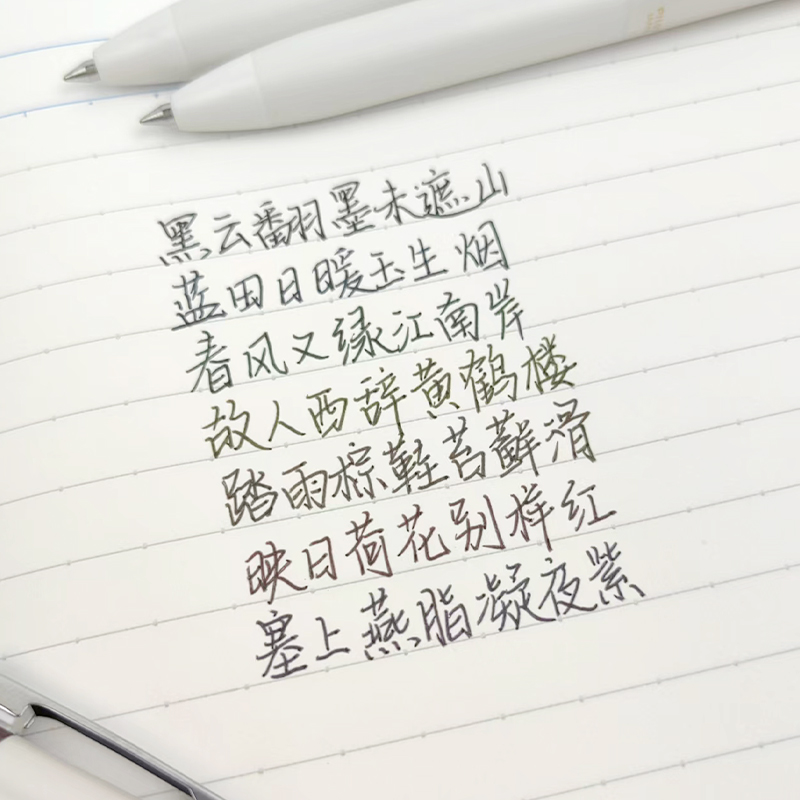 黑云翻墨未遮山
蓝田日暖玉生烟
春风又绿江南岸
故人西辞黄鹤楼
踏雨棕鞋苔藓滑
映日荷花别样红
塞上燕脂凝夜紫